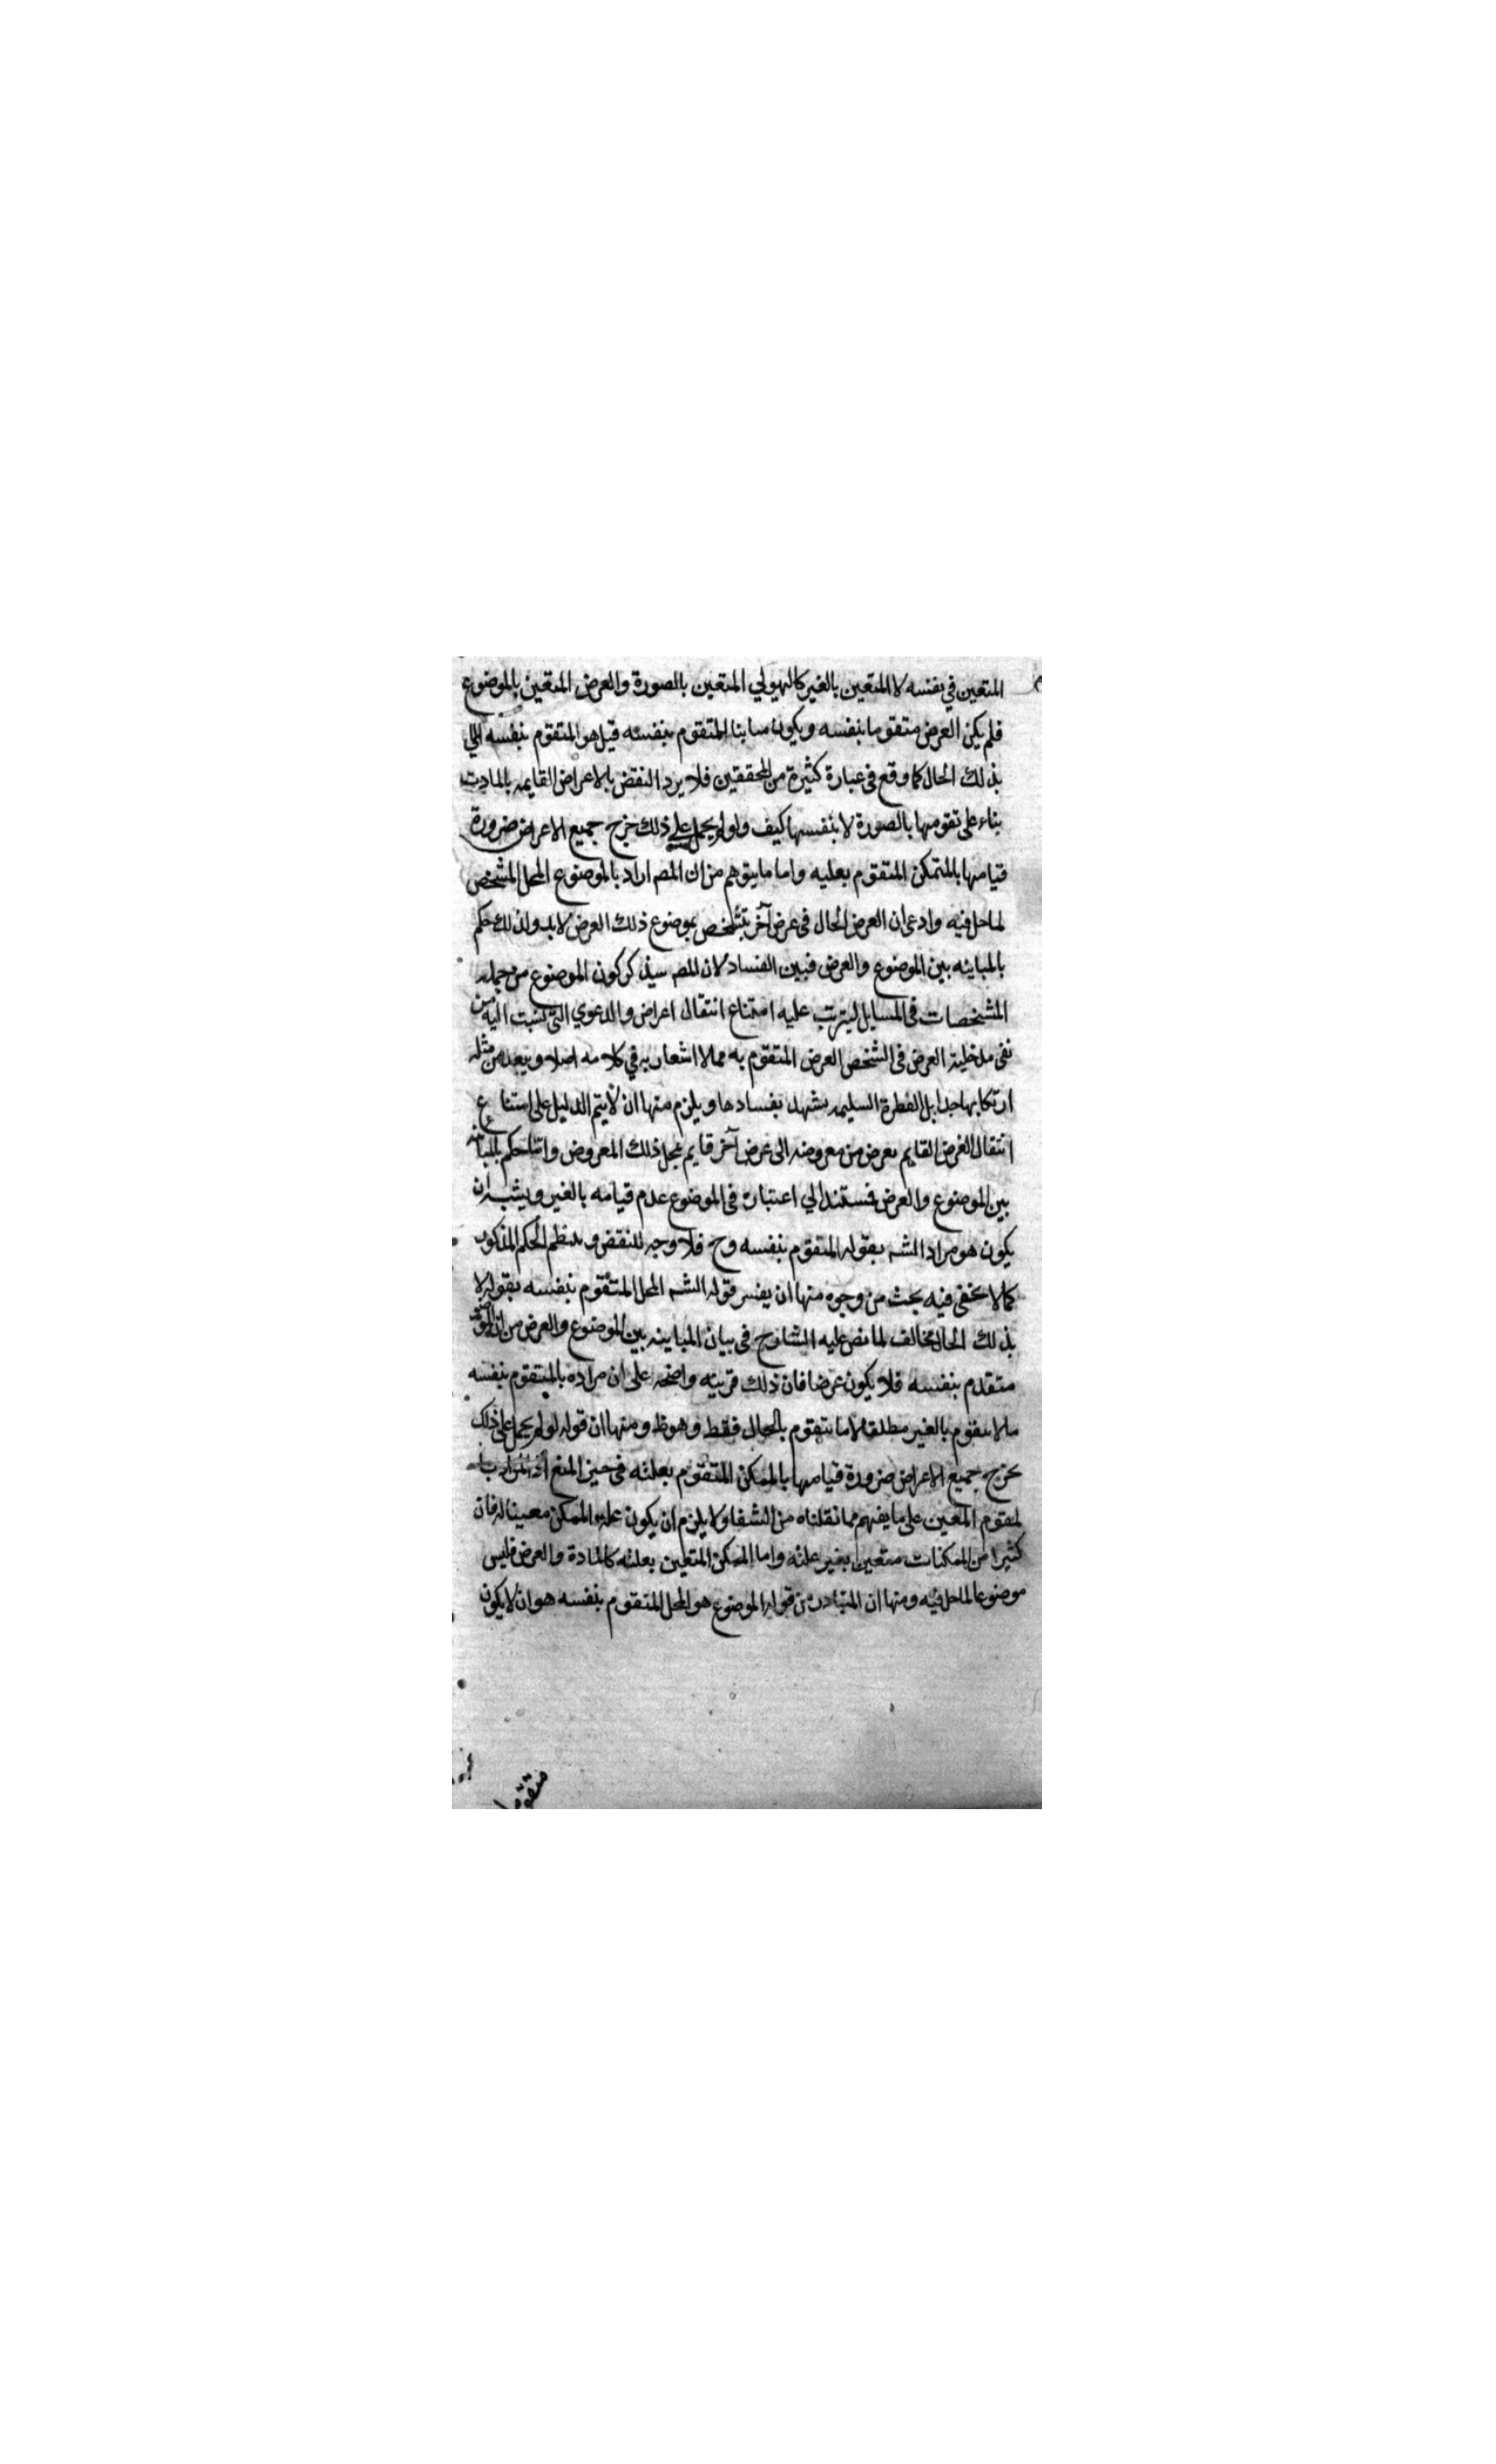 المتعين في نفسه لا المتعين بالغير كالهيولي المتعين بالصورة والعرض المتعين بالموضوع
فلم يكن العرض متقوما بنفسه ويكون مباينا للمتقوم بنفسه قيل هو المتقوم بنفسه اي لا
بذلك الحال كما وقع في عبارة كثيرة من المحققين فلا يرد النقض بالاعراض القايمه بالماديت
بناء على تقومها بالصورة لا بنفسها كيف ولو لم يحمل علي ذلك خرج جميع الاعراض ضرورة
قيامها بالمتمكن المتقوم بعليه واما ما يتوهم من ان المصه اراد بالموضوع المحل المشخص
لما حل فيه وادعى ان العرض الحال في عرض آخر يتشخص بموضوع ذلك العرض لا به ولذلك حكم
بالمباينه بين الموضوع والعرض فبين الفساد لان المصه سيذكر كون الموضوع من جمله
المشخصات في المسايل ليترتب عليه امتناع انتقال اعراض والدعوي التي نسبت اليه من
نفي مدخلية العرض في الشخص العرض المتقوم به مما لا اشعار به في كلامه اصلا ويبعد من مثله
ارتكابها جدا بل الفطرة السليمه يشهد بفسادها ويلزم منها ان لا يتم الدليل على امتناع
انتقال العرض القايم بعرض من معروضه الى عرض آخر قايم بمحل ذلك المعروض وانما حكم بالمباينه
بين الموضوع والعرض فستند الي اعتباره في الموضوع عدم قيامه بالغير ويشبه ان
يكون هو مراد الشه بقوله المتقوم بنفسه وح فلا وجه للنقض وينتظم الحكم المذكور
كما لا يخفى فيه بحث من وجوه منها ان يفسر قوله الشه المحل المتقوم بنفسه بقوله لا
بذلك الحال مخالف لما نص عليه الشارح في بيان المباينه بين الموضوع والعرض من ان الموضوع
متقدم بنفسه فلا يكون عرضا فان ذلك قرينه واضحه على ان مراده بالمتقوم بنفسه
ما لا يتقوم بالغير مطلقا لا ما يتقوم بالحال فقط وهو ظ ومنها ان قوله لو لم يحمل على ذلك
يخرج جميع الاعراض ضرورة قيامها بالممكن المتقوم بعلته في حيز المنع اذ المراد با
لمقوم المتعين على ما يفهم مما نقلناه من الشفا ولا يلزم ان يكون علة الممكن معينا له فان
كثيرا من الممكنات متعين بغير علته واما الممكن المتعين بعلته كالمادة والعرض فليس
موضوعا لما حل فيه ومنها ان المتبادر من قوله الموضوع هو المحل المتقوم بنفسه هو ان لا يكون
متقوما